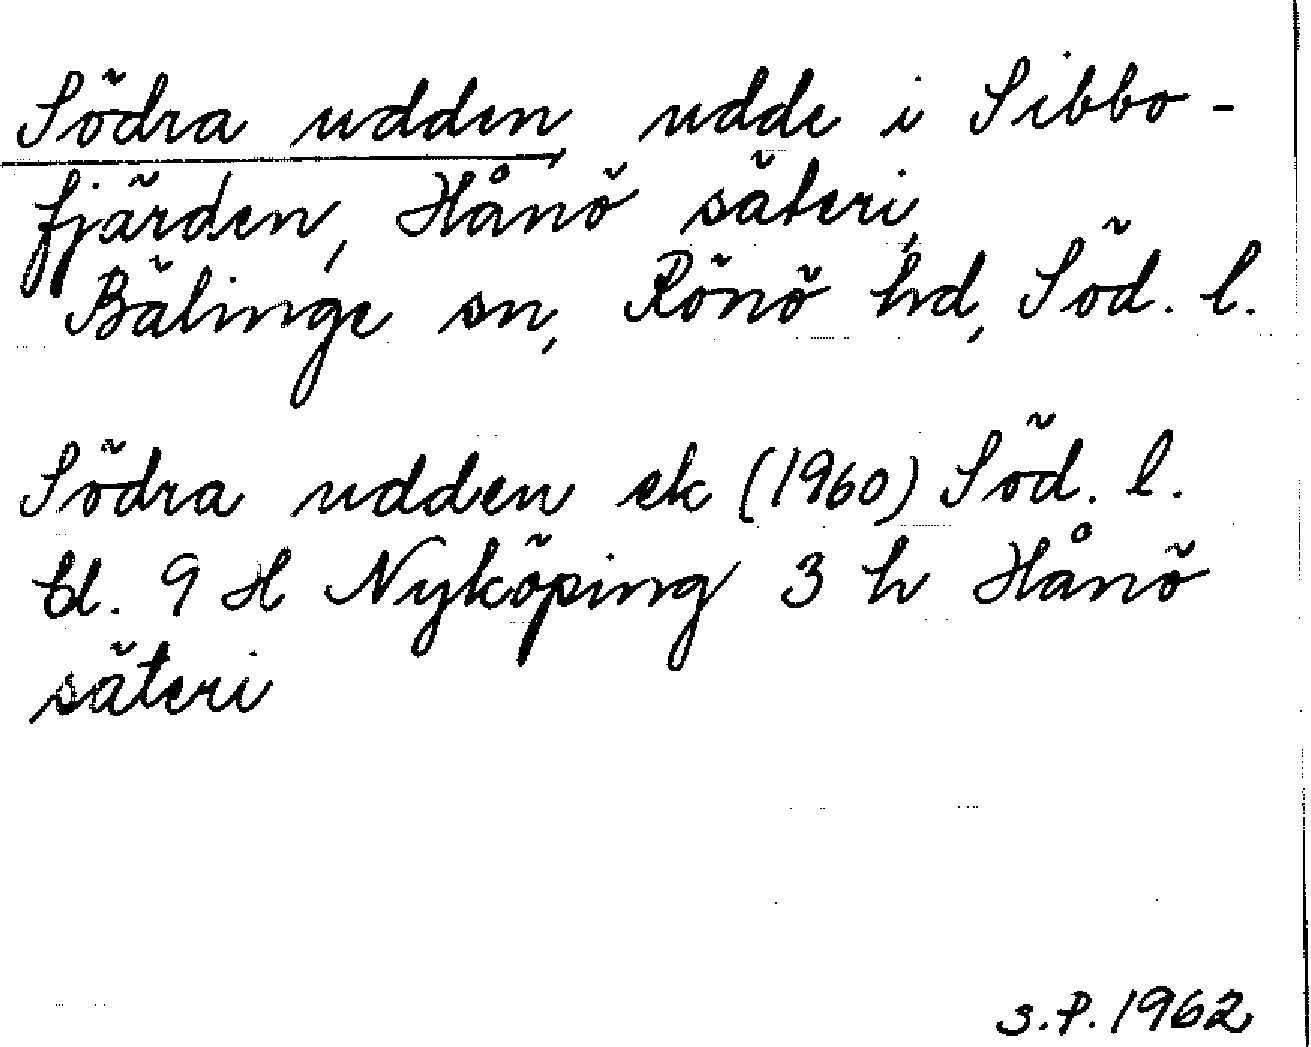 Södra udden, udde i Sibbo-
fjärden, Hånö säteri,
Bälinge sn, Rönö hd, Söd. l.
Södra udden ek (1960) Söd. l.
bl. 9 H Nyköping 3 h Hånö
säteri
S.P. 1962